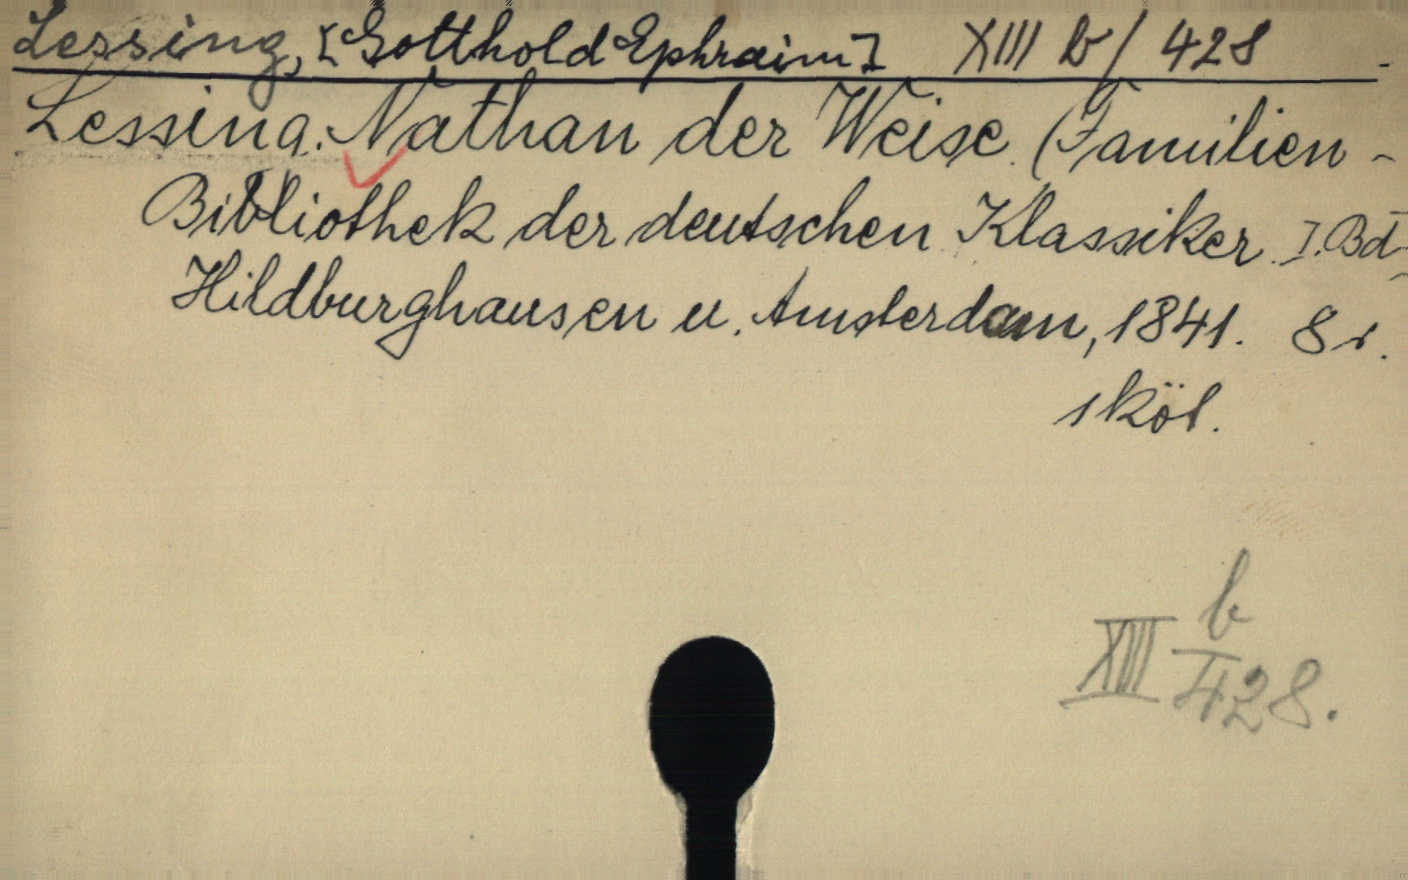 Lessing, [Gotthold Ephraim] XIII b/ 428
Lessing. Nathan der Weise. (Familien-
Bibliothek der deutschen Klassiker. I. Bd
Hildburghausen u. Amsterdam, 1841. 8 r.
1 köt.
XIII b/428.